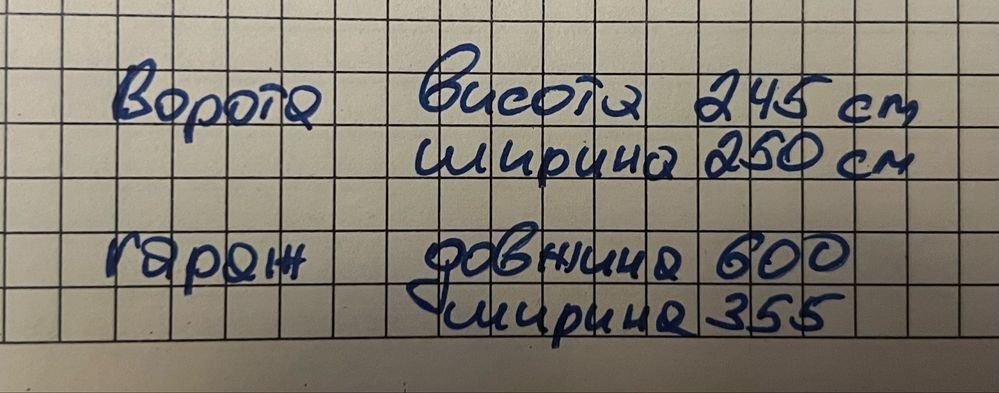 Ворота висота 245 см
ширина 250 см
гараж довжина 600
ширина 355